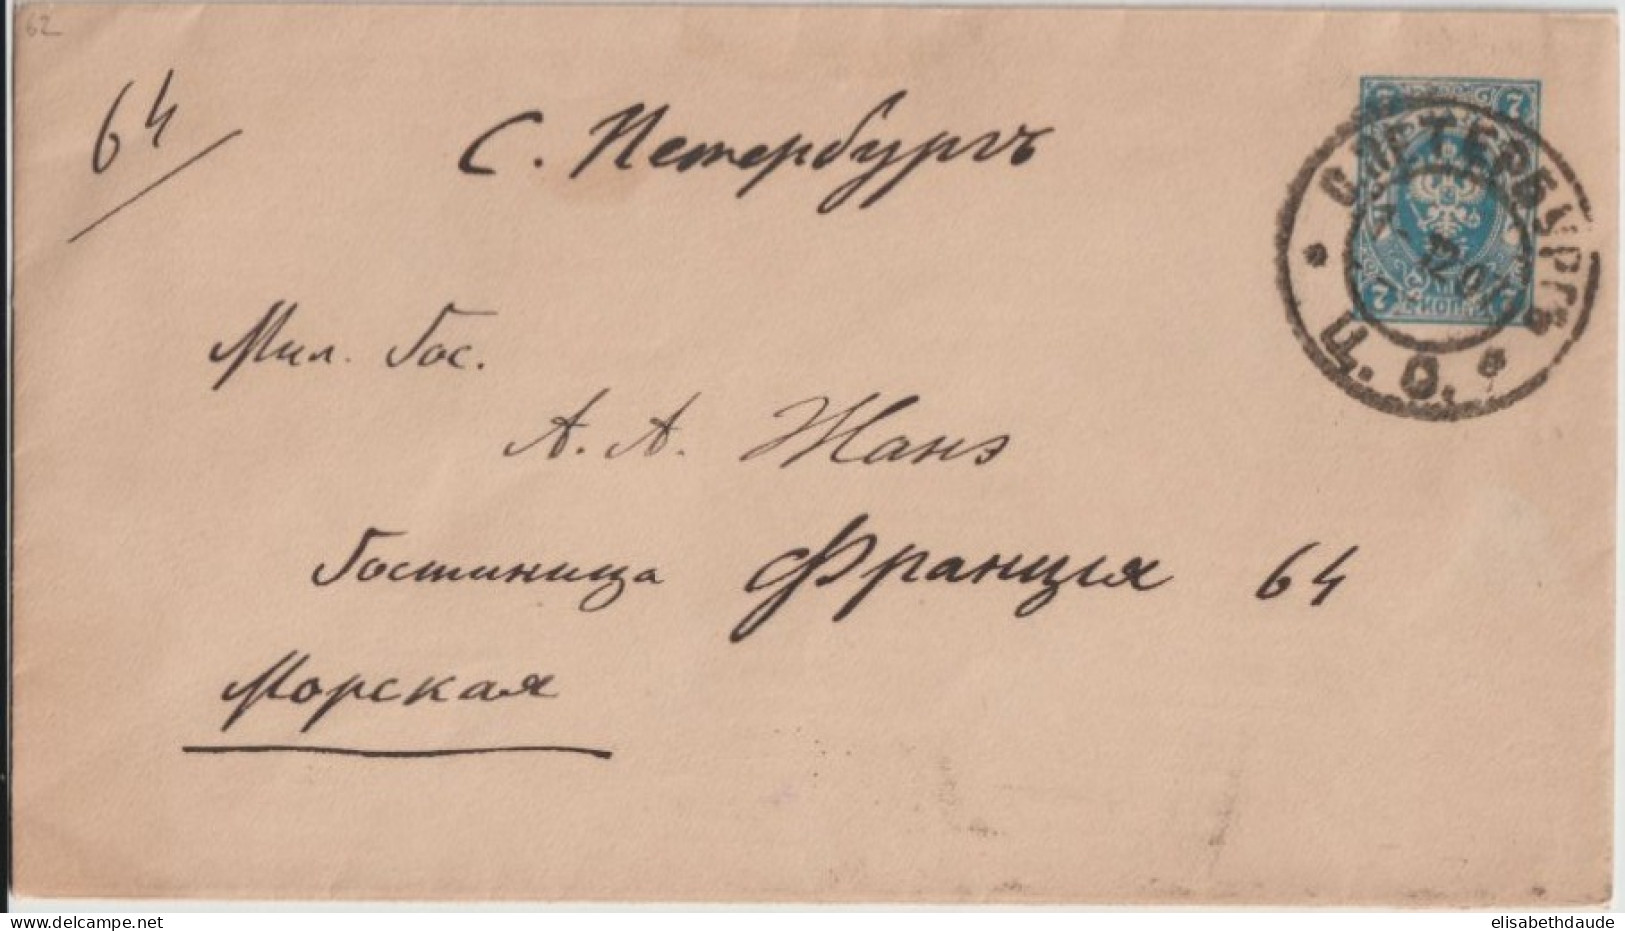 62
64
С. Петербургъ
7 7
С.ПЕТЕРБУРГЪ
Ц. О.
7 КОП. 7
Мил. Гос.
А. А. Жанэ
Гостиница Франція 64
Морская
www.delcampe.net
elisabethdaude